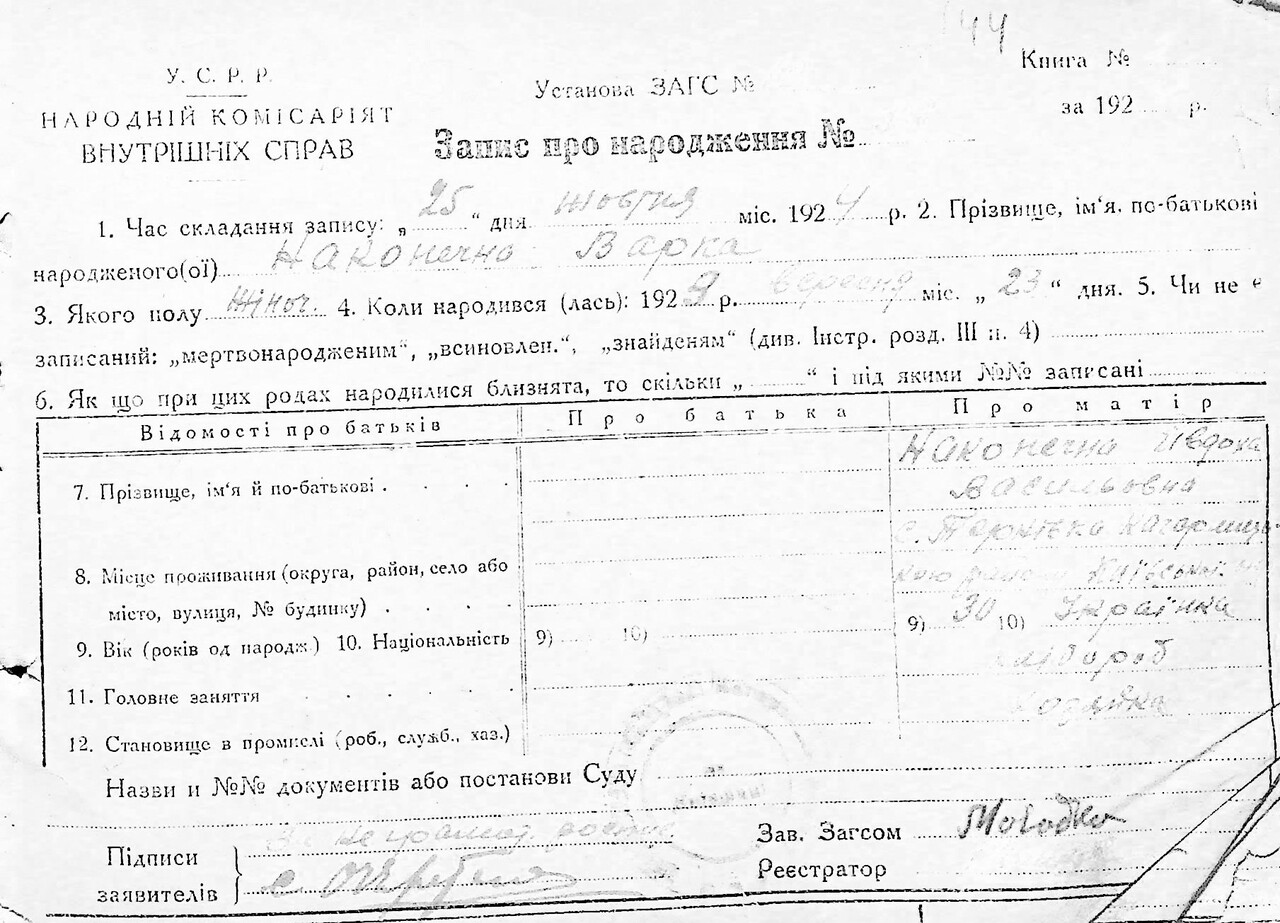 44
У. С. Р. Р.
НАРОДНІЙ КОМІСАРІЯТ
ВНУТРІШНІХ СПРАВ
Установа ЗАГС №
Запис про народження №
Книга №
за 192 р.
1. Час складання запису: „ 25 “ дня жовтня міс. 1924 р. 2. Прізвище, ім‘я, по-батькові
народженого(ої) Наконечна Варка
3. Якого полу жіноч. 4. Коли народився (лась): 192 р. вересня міс. „ 23 “ дня. 5. Чи не є
записаний: „мертвонародженим“, „всиновлен.“, „знайденям“ (див. Інстр. розд. III п. 4)
6. Як що при цих родах народилися близнята, то скільки „ “ і під якими №№ записані
Відомості про батьків Про батька Про матір
7. Прізвище, ім‘я й по-батькові Наконечна Івдоха
Васильовна
8. Місце проживання (округа, район, село або
місто, вулиця, № будинку)
с.
району Київської
9. Вік (років од народж.) 10. Національність 9) 10) 9) 30 10) Українка
11. Головне заняття хлібороб
12. Становище в промислі (роб., служб., хаз.) хозяйка
Назви и №№ документів або постанови Суду
Підписи
заявителів
Зав. Загсом Молодко
Реєстратор